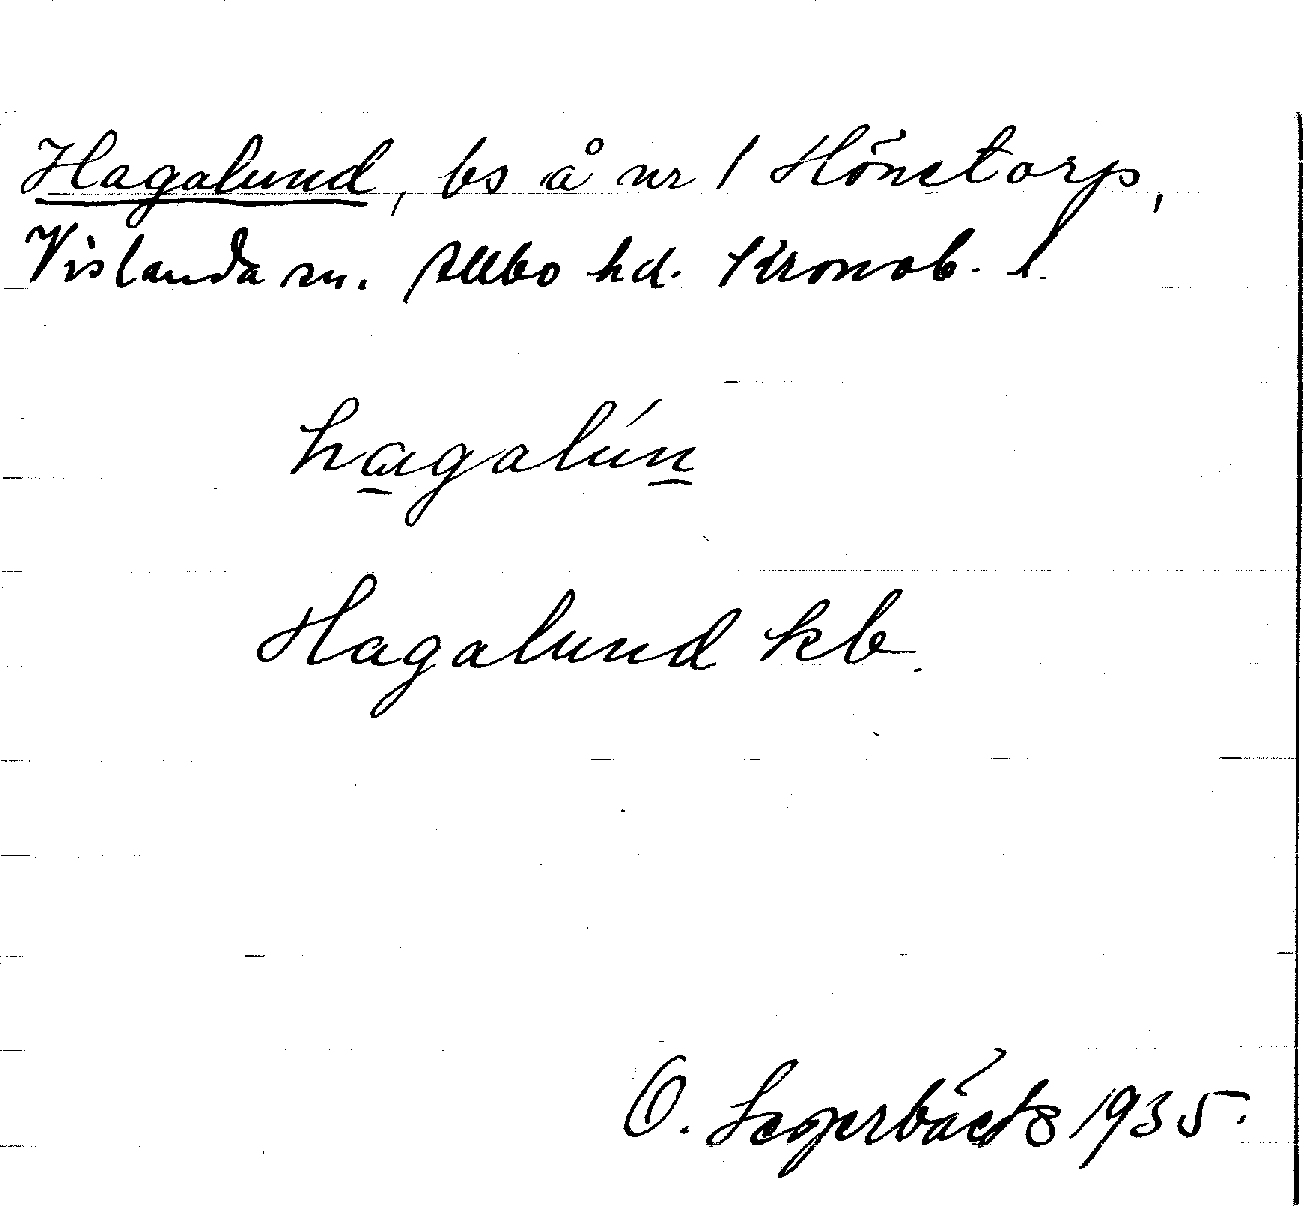 Hagalund, bs å nr 1 Hönetorp,
Vislanda sn. Allbo hd. Kronob. l.
hagalún
Hagalund kb.
O. 1935.